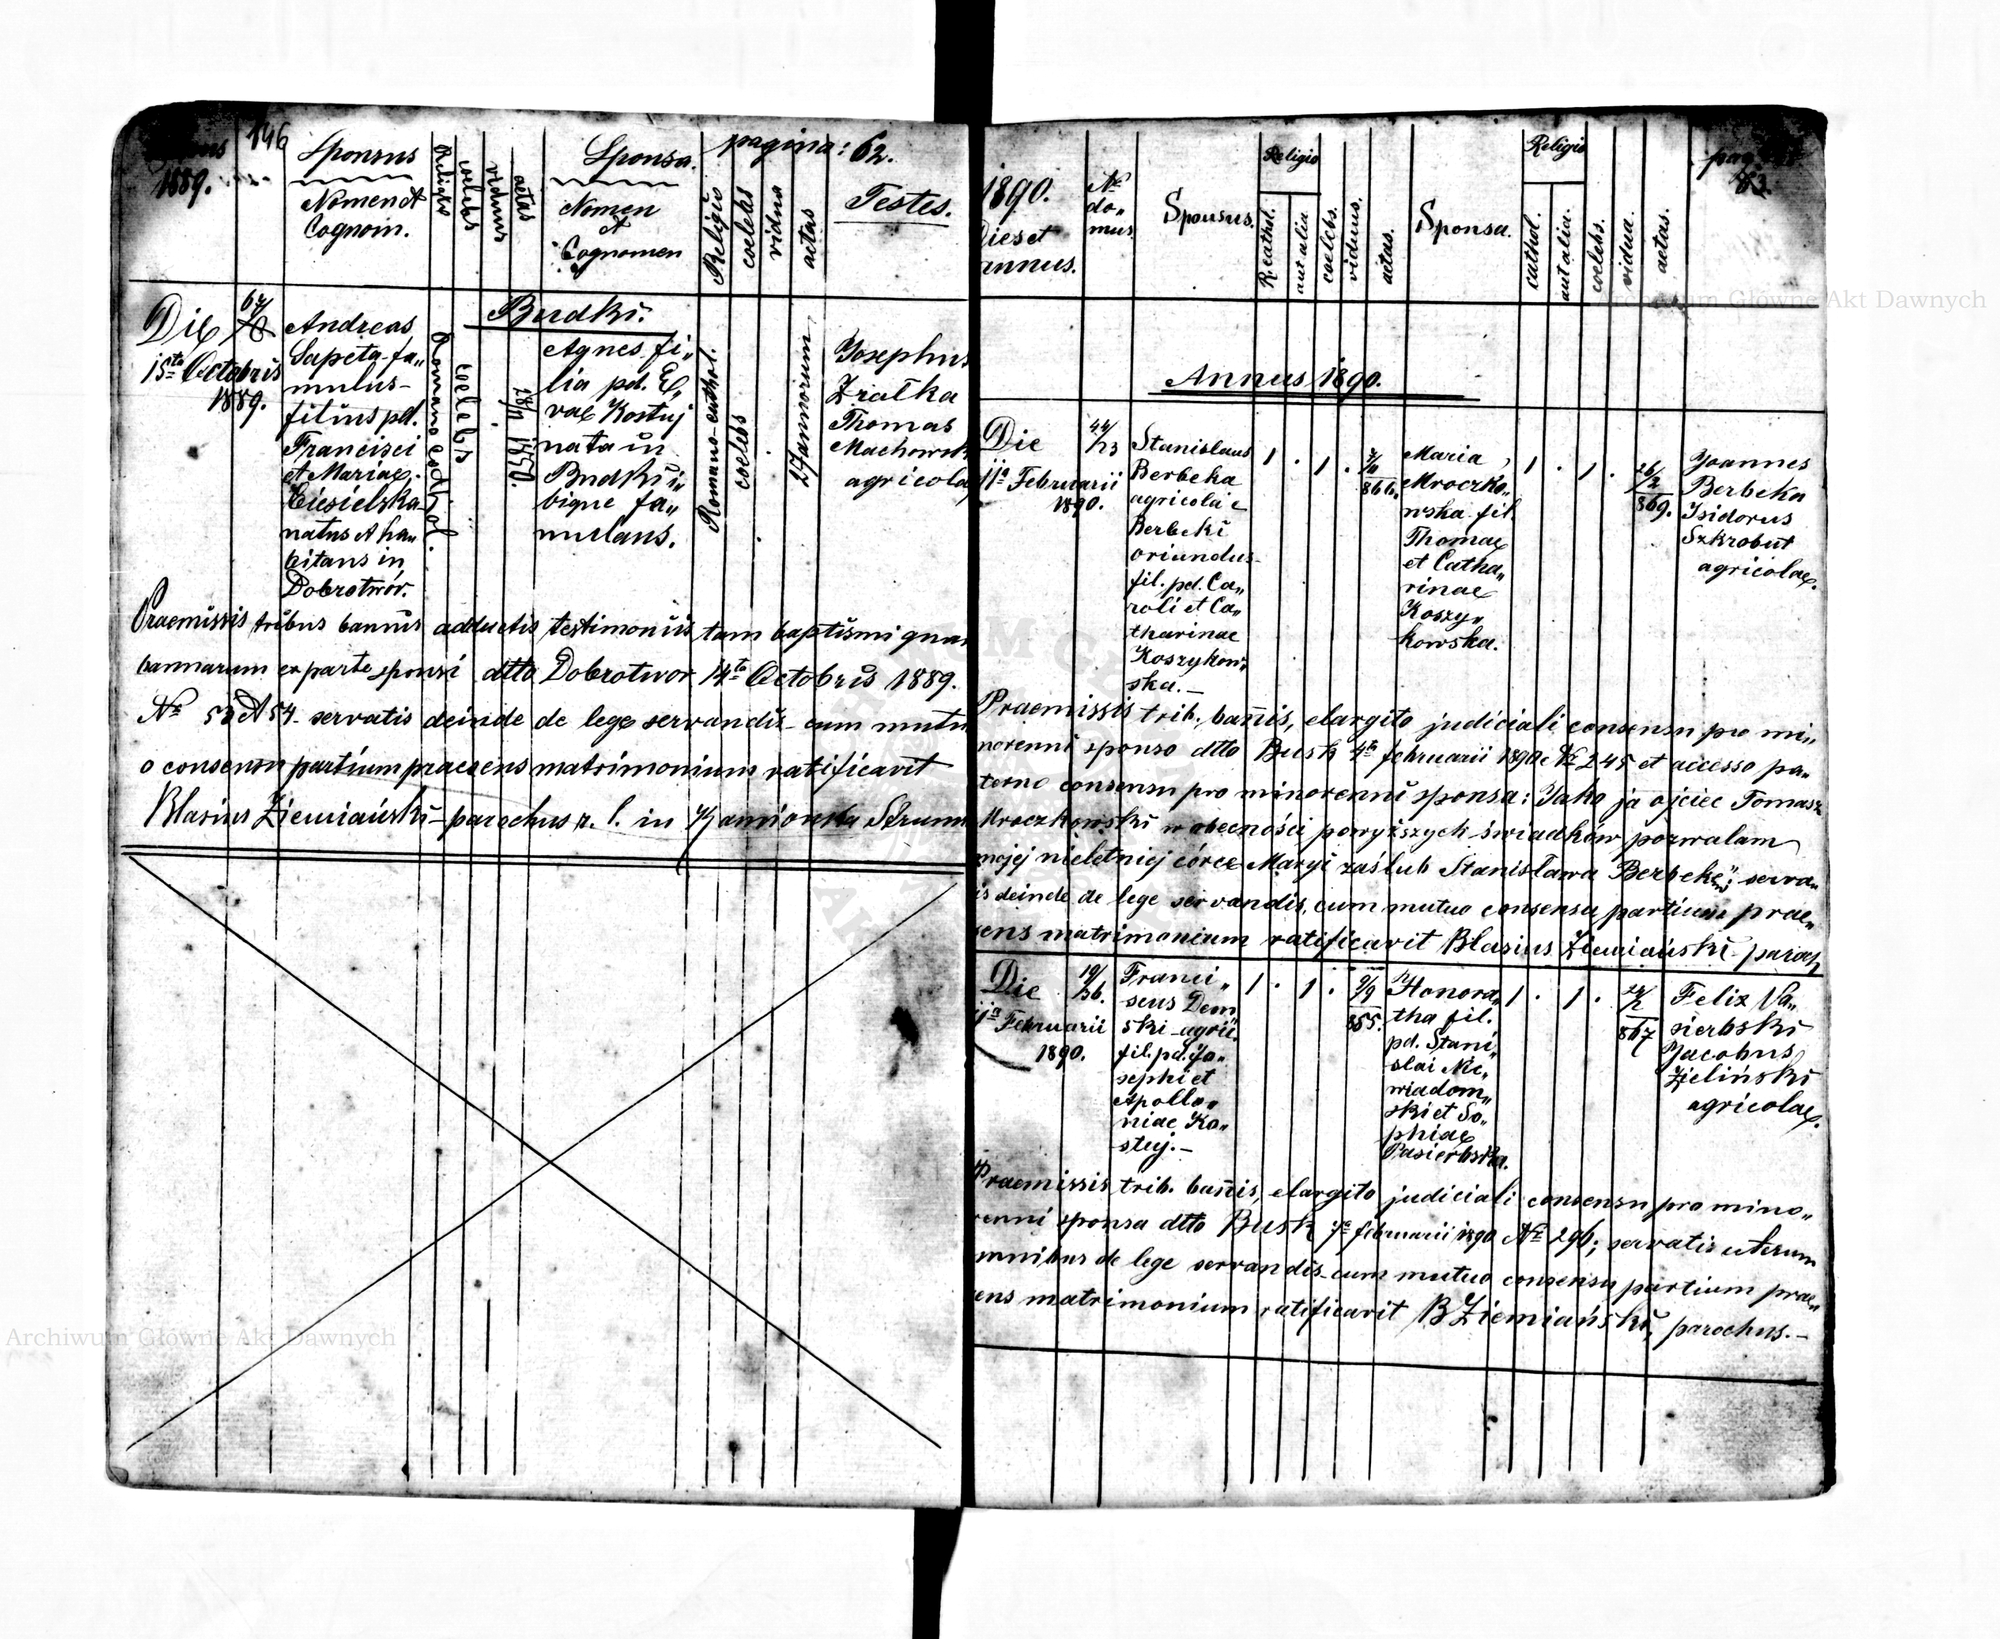 1889.
146
Sponsus
Nomen et
Cognom.
Religio
coelebs
viduus
aetas
Sponsa.
Nomen
et
Cognomen
pagina: 62.
Religio
coelebs
vidua
aetas
Testes.
Budki.
Die
15ta Octobris
1889.
Andreas
Sapeta fa„
mulus
filius pd.
Francisci
et Mariae
Ciesielska
natus et ha„
bitans in
Dobrotwór.
Romano cathol.
coelebs
28/11 1850.
Agnes fi„
lia pd. E„
vae Kostuj
nata in
Budki i„
bique fa„
mulans.
Romano-cathol.
coelebs
27 annorum
Josephus
Zratka
Thomas
Machowsk
agricolae
Praemissis tribus bannis adductis testimoniis tam baptismi quam
bannarum ex parte sponsi dtto Dobrotwor 14ta Octobris 1889.
No 53 et 54 servatis deinde de lege servandis cum mutu
o consensu partium praesens matrimonium ratificavit
Blasius Ziemiański parochus r. l. in Kamionka Strum
1890.
Dies et
annus.
No
do„
mus
Sponsus.
Religio
R. cathol.
aut alia
coelebs.
viduus.
aetas.
Sponsa.
Religio
cathol.
aut alia.
coelebs.
vidua.
aetas.
Annus 1890.
Die
11a Februarii
1890.
44/23
Stanislaus
Berbeka
agricola e
Berbeki
oriundus
fil. pd. Ca„
roli et Ca„
tharinae
Koszykow„
ska.—
1 . 1 .
Maria
Mroczko„
wska fil.
Thomae
et Catha„
rinae
Koszy„
kowska.
1 . 1 .
26/2
869.
Joannes
Berbeka
Isidorus
Szkrobut
agricolae.
Praemissis trib. bañis, elargito judiciali consensu pro mi„
norenni sponso dtto Busk 4ta februarii 1890 No 245 et accesso pa„
terno consensu pro minorenni sponsa: Jako ja ojciec Tomasz
Mroczkowski w obecności powyższych świadków pozwalam
mojej nieletniej córce Maryi zaślub Stanisława Berbekę"; serva„
is deinde de lege servandis, cum mutuo consensu partium prae„
sens matrimonium ratificavit Blasius Ziemiański paroch
Die
11a Februarii
1890.
19/36.
Franci„
scus Dem„
ski agric.
fil. pd. Jo„
sephi et
Apollo„
niae Ko„
stuj.—
1 . 1 .
9/9
855.
Honora„
tha fil.
pd. Stani„
slai Nie„
wiadom„
ski et So„
phiae
Pasierbska.
1 . 1 .
867
Felix Pa„
sierbski
Jacobus
Zieliński
agricolae.
Praemissis trib. bañis, elargito judiciali consensu pro mino„
renni sponsa dtto Busk 7a februarii 1890 No 296; servatis ceterum
omnibus de lege servandis cum mutuo consensu partium prae„
ens matrimonium ratificavit B Ziemiański, parochus.—
Archiwum Główne Akt Dawnych
Archiwum Główne Akt Dawnych